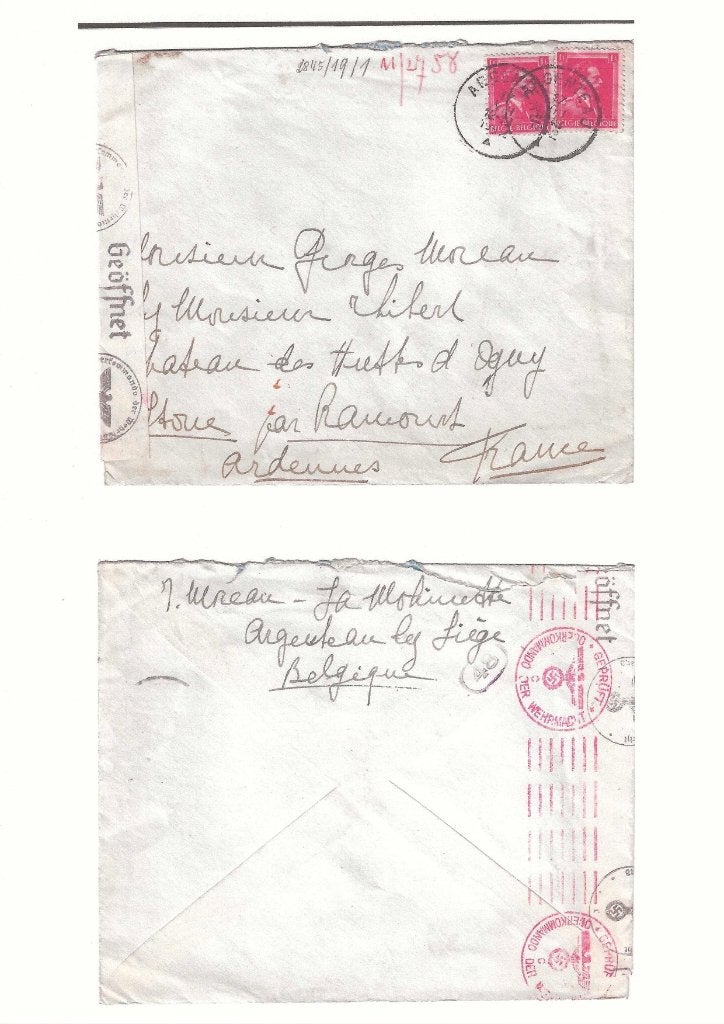 1845/19/1 11/27 58
BELGIE-BELGIQUE BELGIE-BELGIQUE
Geöffnet
onsieur Georges Moreau
Monsieur Thibert
hateau des Huttes d Ogny
Stone par Raucourt
Ardennes France
J. Moreau - La Motinette
Argenteau lez Liège
Belgique
öffnet
OBERKOMMANDO DER WEHRMACHT * GEPRÜFT *
C
OBERKOMMANDO DER
GEPRÜF
C